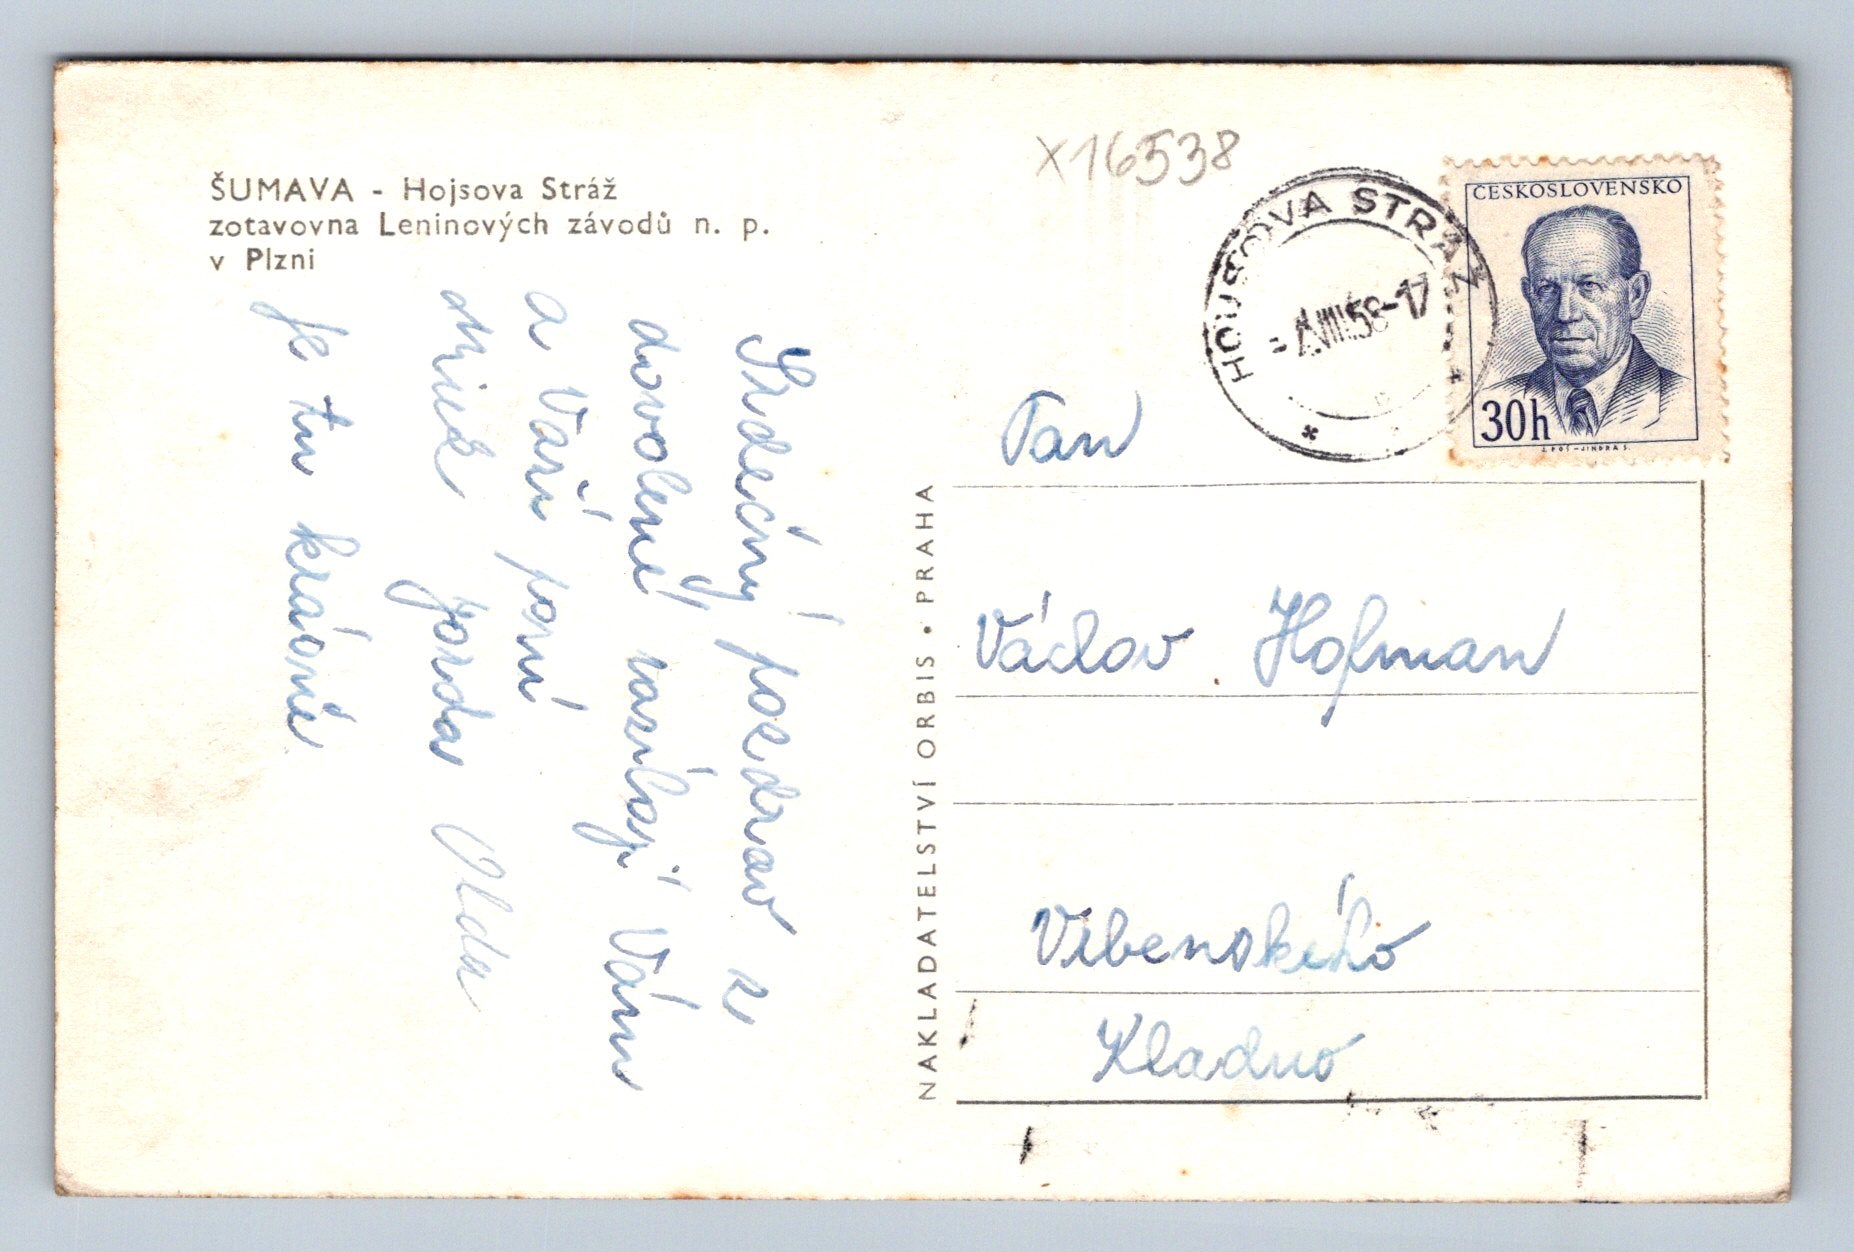 ŠUMAVA - Hojsova Stráž
zotavovna Leninových závodů n. p.
v Plzni
Srdečný pozdrav z
dovolené zasílají Vám
a Vaší paní
Mirek Jarda Olda
Je tu krásně
NAKLADATELSTVÍ ORBIS • PRAHA
X16538
HOJSOVA STRÁŽ
VIII.58-17
ČESKOSLOVENSKO
30h
J. POŠ - JINDRA S.
Pan
Václav Hofman
Vrbenského
Kladno